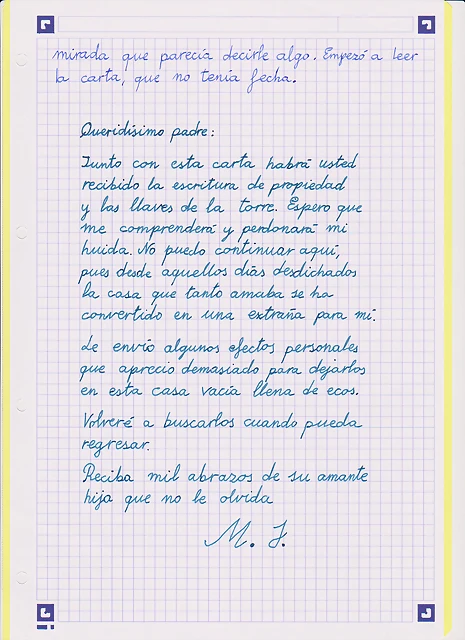 mirada que parecía decirle algo. Empezó a leer
la carta, que no tenía fecha.
Queridísimo padre:
Junto con esta carta habrá usted
recibido la escritura de propiedad
y las llaves de la torre. Espero que
me comprenderá y perdonará mi
huida. No puedo continuar aquí,
pues desde aquellos días desdichados
la casa que tanto amaba se ha
convertido en una extraña para mí.
Le envío algunos efectos personales
que aprecio demasiado para dejarlos
en esta casa vacía llena de ecos.
Volveré a buscarlos cuando pueda
regresar.
Reciba mil abrazos de su amante
hija que no le olvida
M. J.